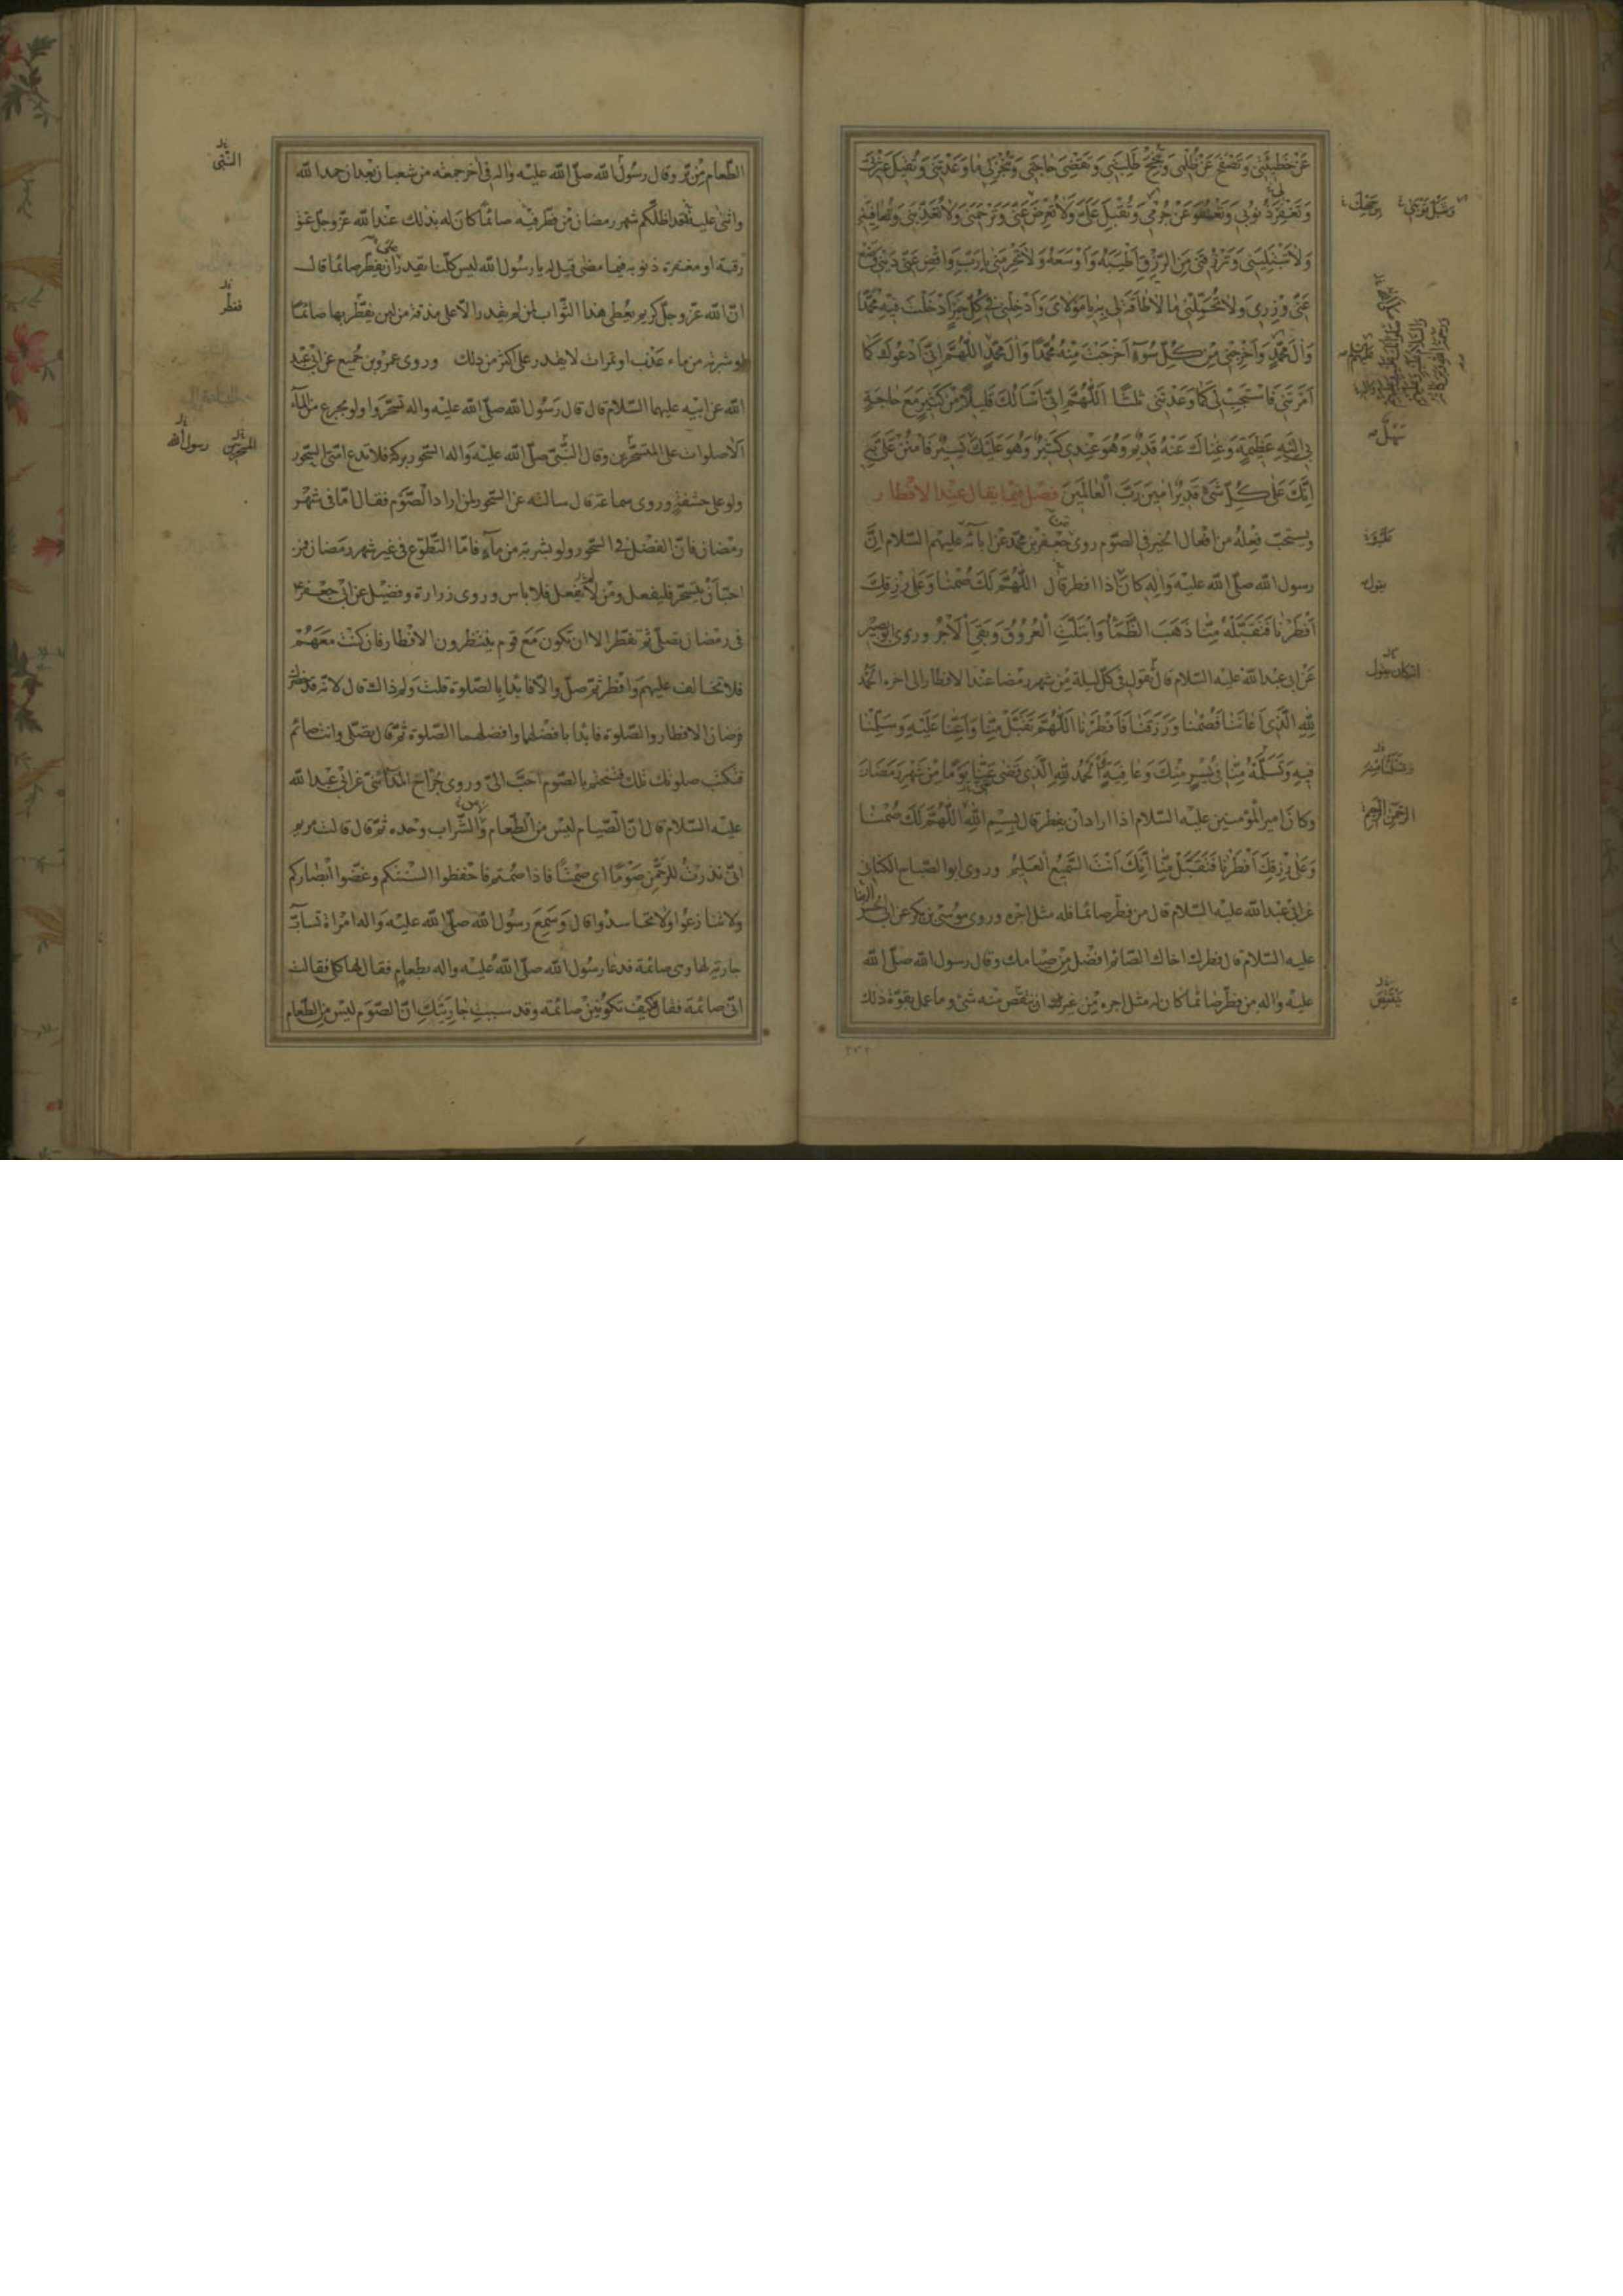 عَنْ خَطيئَتي وَتَصْفَحَ عَنْ ظُلْمي وَتُنْجِحَ طَلِبَتي وَتَقْضِيَ حاجَتي وَتُنْجِزَ لي ما وَعَدْتَني وَتُقيلَ عَثْرَتي
وَتَغْفِرَ ذُنُوبي وَتَعْفُوَ عَنْ جُرْمي وَتُقْبِلَ عَلَيَّ وَلا تُعْرِضَ عَنّي وَتَرْحَمَني وَلا تُعَذِّبَني وَتُعافِيَني
وَلا تَبْتَلِيَني وَتَرْزُقَني مِنَ الرِّزْقِ اَطْيَبَهُ وَاَوْسَعَهُ وَلا تَحْرِمَني يا رَبِّ وَاقْضِ عَنّي دَيْني وَضَعْ
عَنّي وِزْري وَلا تُحَمِّلْني ما لا طاقَةَ لي بِهِ يا مَوْلايَ وَاَدْخِلْني في كُلِّ خَيْرٍ اَدْخَلْتَ فيهِ مُحَمَّدًا
وَآلَ مُحَمَّدٍ وَاَخْرِجْني مِنْ كُلِّ سُوءٍ اَخْرَجْتَ مِنْهُ مُحَمَّدًا وَآلَ مُحَمَّدٍ اَللّهُمَّ اِنّي اَدْعُوكَ كَما
اَمَرْتَني فَاسْتَجِبْ لي كَما وَعَدْتَني ثلثًا اَللّهُمَّ اِنّي اَسْاَلُكَ قَليلًا مِنْ كَثيرٍ مَعَ حاجَةٍ
بي اِلَيْهِ عَظيمَةٍ وَغِناكَ عَنْهُ قَديمٌ وَهُوَ عِنْدي كَثيرٌ وَهُوَ عَلَيْكَ يَسيرٌ فَامْنُنْ عَلَيَّ بِهِ
اِنَّكَ عَلى كُلِّ شَيْءٍ قَديرٌ امينَ رَبَّ الْعالَمينَ فصل فيما يقال عند الافطار
ويستحب فعله من افعال الخير في الصوم روى جعفر بن محمد عن ابائه عليهم السلام انّ
رسول الله صلّى الله عليه واله كان اذا افطر قال اللّهُمَّ لَكَ صُمْنا وَعَلى رِزْقِكَ
اَفْطَرْنا فَتَقَبَّلْهُ مِنّا ذَهَبَ الظَّمَأُ وَابْتَلَّتِ الْعُرُوقُ وَبَقِيَ الْاَجْرُ وروى ابو بصير
عن ابي عبد الله عليه السلام قال تقول في كلّ ليلة من شهر رمضان عند الافطار الى اخره الْحَمْدُ
لِلّهِ الَّذي اَعانَنا فَصُمْنا وَرَزَقَنا فَاَفْطَرْنا اَللّهُمَّ تَقَبَّلْ مِنّا وَاَعِنّا عَلَيْهِ وَسَلِّمْنا
فيهِ وَتَسَلَّمْهُ مِنّا في يُسْرٍ مِنْكَ وَعافِيَةٍ اَلْحَمْدُ لِلّهِ الَّذي قَضى عَنّا يَوْمًا مِنْ شَهْرِ رَمَضانَ
وكان امير المؤمنين عليه السلام اذا اراد ان يفطر قال بِسْمِ اللهِ اَللّهُمَّ لَكَ صُمْنا
وَعَلى رِزْقِكَ اَفْطَرْنا فَتَقَبَّلْ مِنّا اِنَّكَ اَنْتَ السَّميعُ الْعَليمُ وروى ابو الصباح الكناني
عن ابي عبد الله عليه السلام قال من فطّر صائما فله مثل اجره وروى موسى بن بكر عن ابي الحسن
عليه السلام قال فطرك اخاك الصائم افضل من صيامك وقال رسول الله صلّى الله
عليه واله من فطّر صائما كان له مثل اجره من غير ان ينقص منه شئ وما عمل بقوّة ذلك
الرَّحْمنِ الرَّحيمِ
الطعام من برّ وقال رسول الله صلّى الله عليه واله في اخر جمعة من شعبان بعد ان حمد الله
واثنى عليه لقد اظلّكم شهر رمضان من فطّر فيه صائمًا كان له بذلك عند الله عزّ وجلّ عتق
رقبة او مغفرة ذنوبه فيما مضى قيل له يا رسول الله ليس كلّنا نقدر ان نفطّر صائمًا قال
انّ الله عزّ وجلّ كريم يعطي هذا الثواب لمن لم يقدر الّا على مذقة من لبن يفطّر بها صائمًا
او شربة من ماء عذب او تمرات لا يقدر على اكثر من ذلك وروى عمرو بن جميع عن ابي عبد
الله عن ابيه عليهما السلام قال قال رسول الله صلّى الله عليه واله تسحّروا ولو بجرع من الماء
الا صلوات على المتسحّرين وقال النبيّ صلّى الله عليه واله السحور بركة فلا تدع امتي السحور
ولو على حشفة وروى سماعة قال سالته عن السحور لمن اراد الصوم فقال امّا في شهر
رمضان فانّ الفضل في السحور ولو بشربة من ماء فامّا التطوّع في غير شهر رمضان فمن
احبّ ان يتسحّر فليفعل ومن لم يفعل فلا باس وروى زرارة وفضيل عن ابي جعفر ع
في رمضان تصلّي ثم تفطر الا ان تكون مع قوم ينتظرون الافطار فان كنت معهم
فلا تخالف عليهم وافطر ثمّ صلّ والّا فابدا بالصلوة قلت ولم ذاك قال لانّه قد حضر
فرضان الافطار والصلوة فابدا بافضلهما وافضلهما الصلوة ثمّ قال تصلّي وانت صائم
فتكتب صلوتك تلك فتختم بالصوم احبّ الىّ وروى جراح المدائني عن ابي عبد الله
عليه السلام قال انّ الصيام ليس من الطعام والشراب وحده ثمّ قال قالت مريم
انّي نذرت للرّحمن صومًا اي صمتًا فاذا صمتم فاحفظوا السنتكم وغضّوا ابصاركم
ولا تنازعوا ولا تحاسدوا قال وسمع رسول الله صلّى الله عليه واله امراة تسابّ
جارية لها وهي صائمة فدعا رسول الله صلّى الله عليه واله بطعام فقال لها كلي فقالت
انّي صائمة فقال كيف تكونين صائمة وقد سببت جاريتك انّ الصوم ليس من الطعام
النبي
فطر
المتسحرين رسول الله